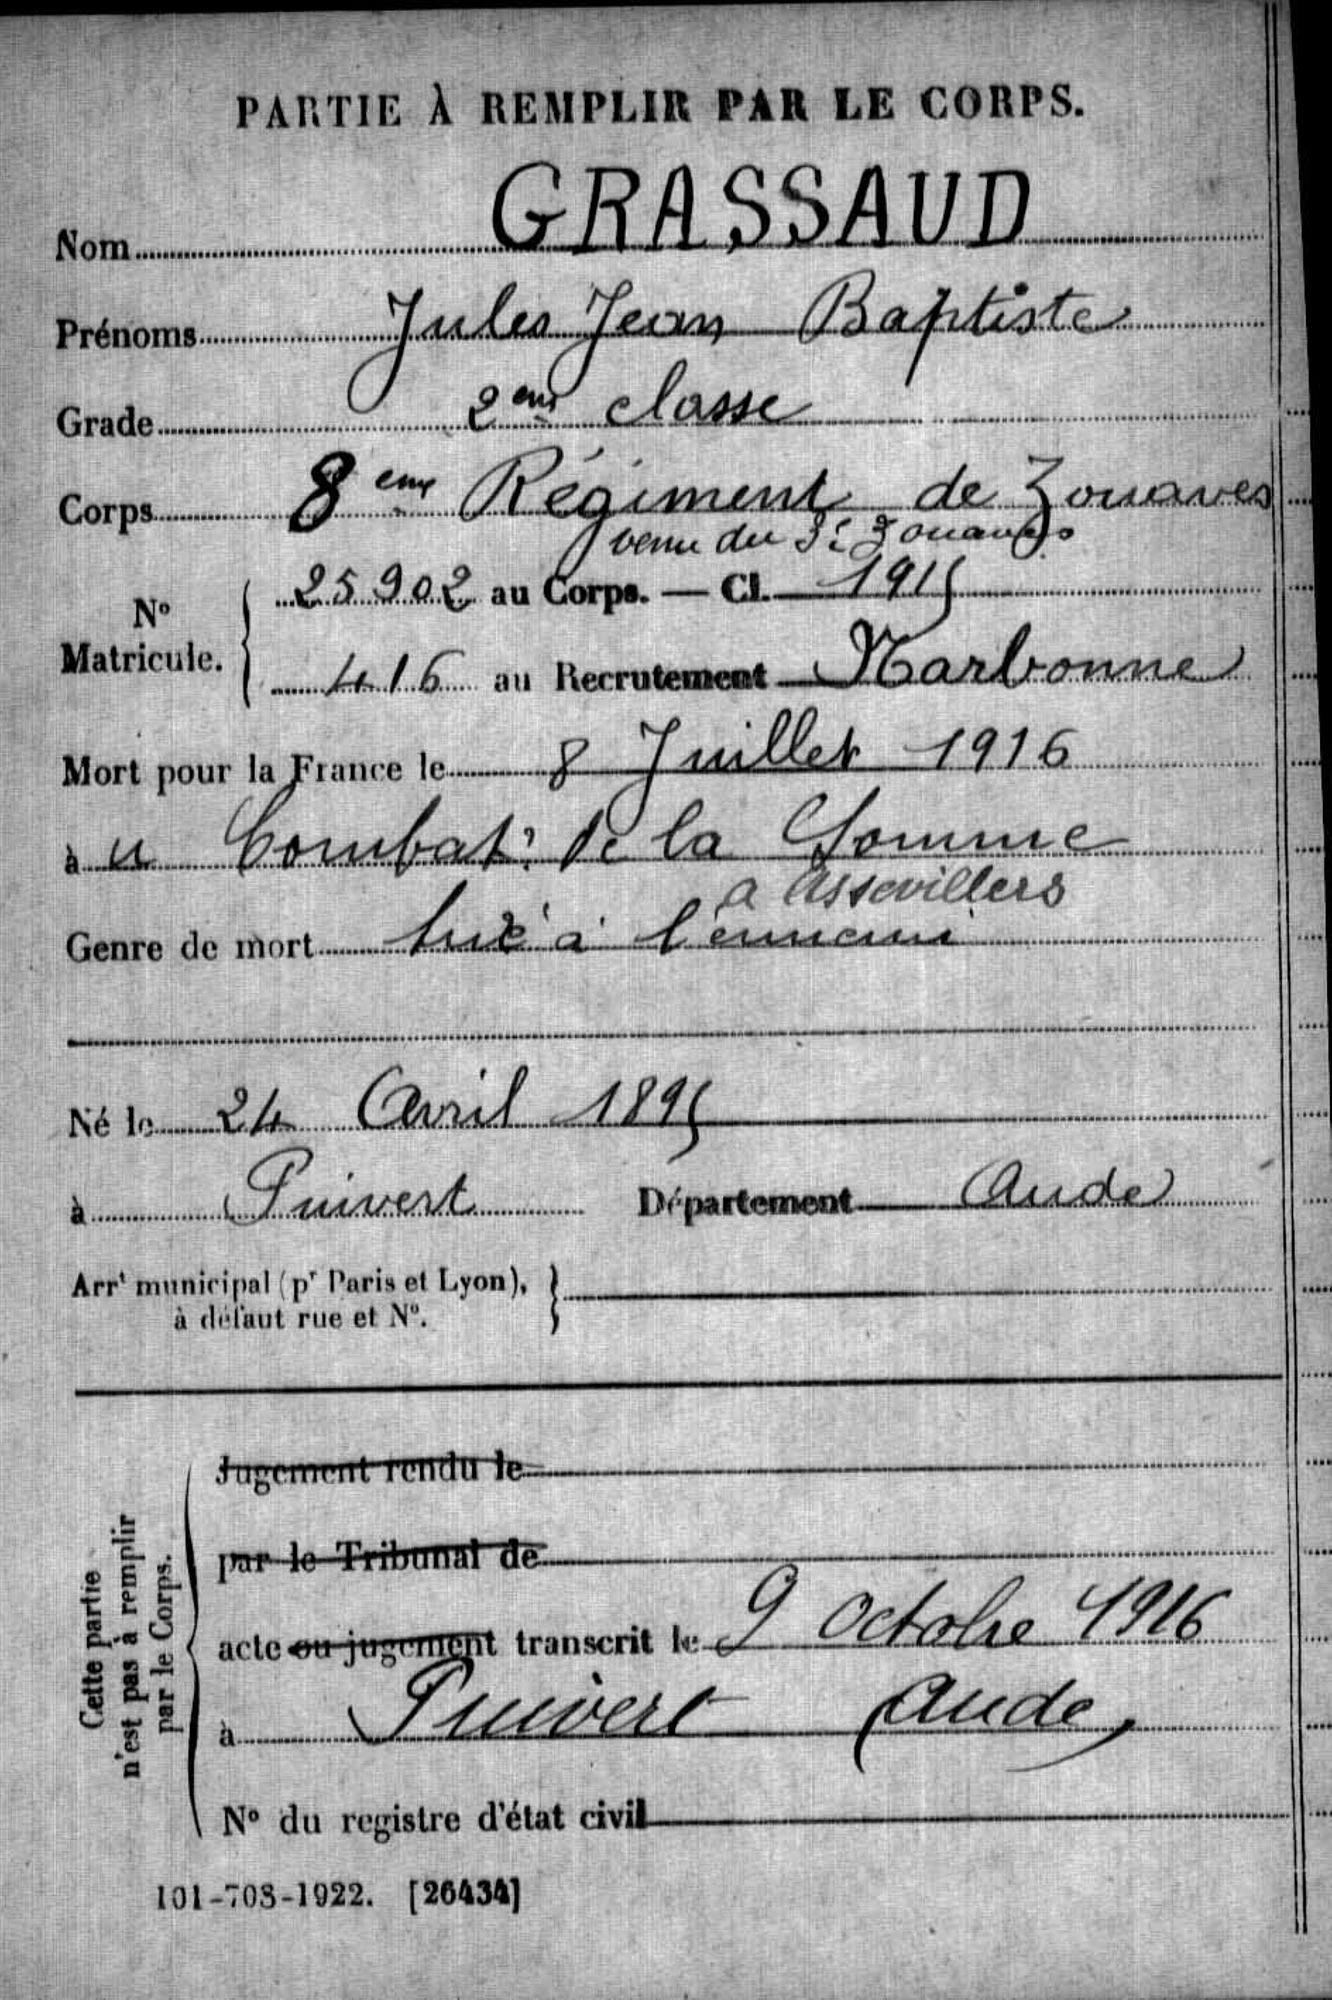 PARTIE À REMPLIR PAR LE CORPS.
Nom GRASSAUD
Prénoms Jules Jean Baptiste
Grade 2eme classe
Corps 8eme Régiment de Zouaves
venu du 3e Zouaves
N° Matricule. 25902 au Corps. — Cl. 1915
416 au Recrutement Narbonne
Mort pour la France le 8 Juillet 1916
à u Combat de la Somme
a Assevillers
Genre de mort tué à l'ennemi
Né le 24 Avril 1895
à Puivert Département Aude
Arrt municipal (pr Paris et Lyon),
à défaut rue et N°.
Cette partie
n'est pas à remplir
par le Corps.
Jugement rendu le
par le Tribunal de
acte ou jugement transcrit le 9 Octobre 1916
à Puivert Aude
N° du registre d'état civil
101-708-1922. [26434]